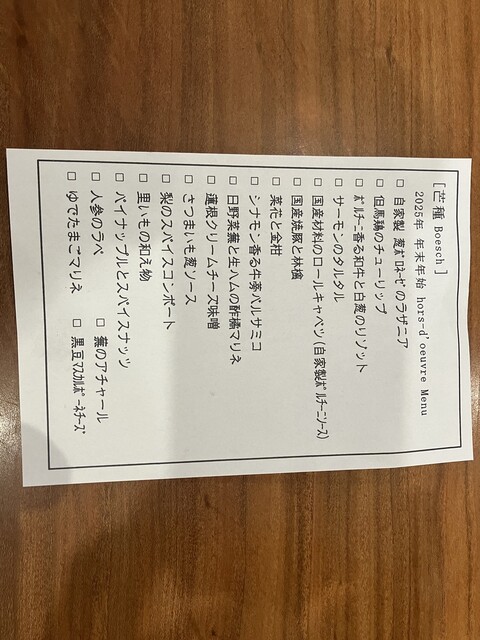 [芒種 Boesch]
2025年 年末年始 hors-d'oeuvre Menu
□ 自家製 葱ﾎﾞﾛﾈｰｾﾞのラザニア
□ 但馬鶏のチューリップ
□ ﾎﾟﾙﾁｰﾆ香る和牛と白葱のリゾット
□ サーモンのタルタル
□ 国産材料のロールキャベツ(自家製ﾎﾟﾙﾁｰﾆｿｰｽ)
□ 国産焼豚と林檎
□ 菜花と金柑
□ シナモン香る牛蒡バルサミコ
□ 日野菜蕪と生ハムの酢橘マリネ
□ 蓮根クリームチーズ味噌
□ さつまいも葱ソース
□ 梨のスパイスコンポート
□ 里いもの和え物
□ パイナップルとスパイスナッツ
□ 人参のラペ □ 蕪のアチャール
□ ゆでたまごマリネ □ 黒豆ﾏｽｶﾙﾎﾟｰﾈﾁｰｽﾞ